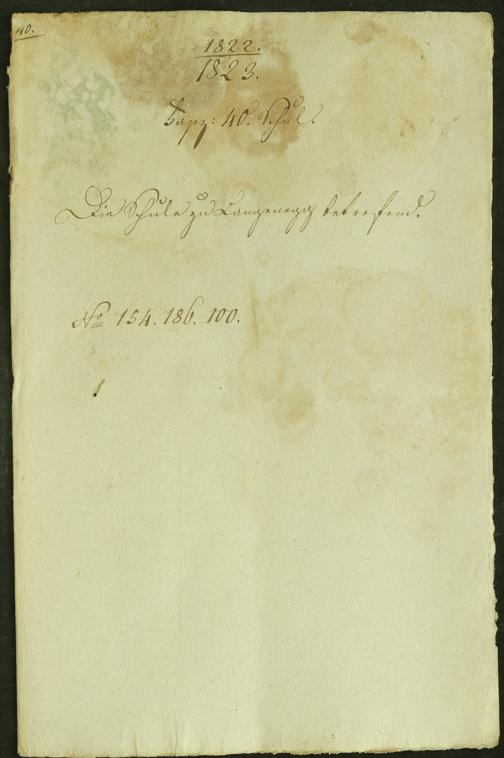 40.
1822.
1823.
Fasz: 40. Schul.
Die Schule zu Langenegg betreffend.
No 154. 186. 100.